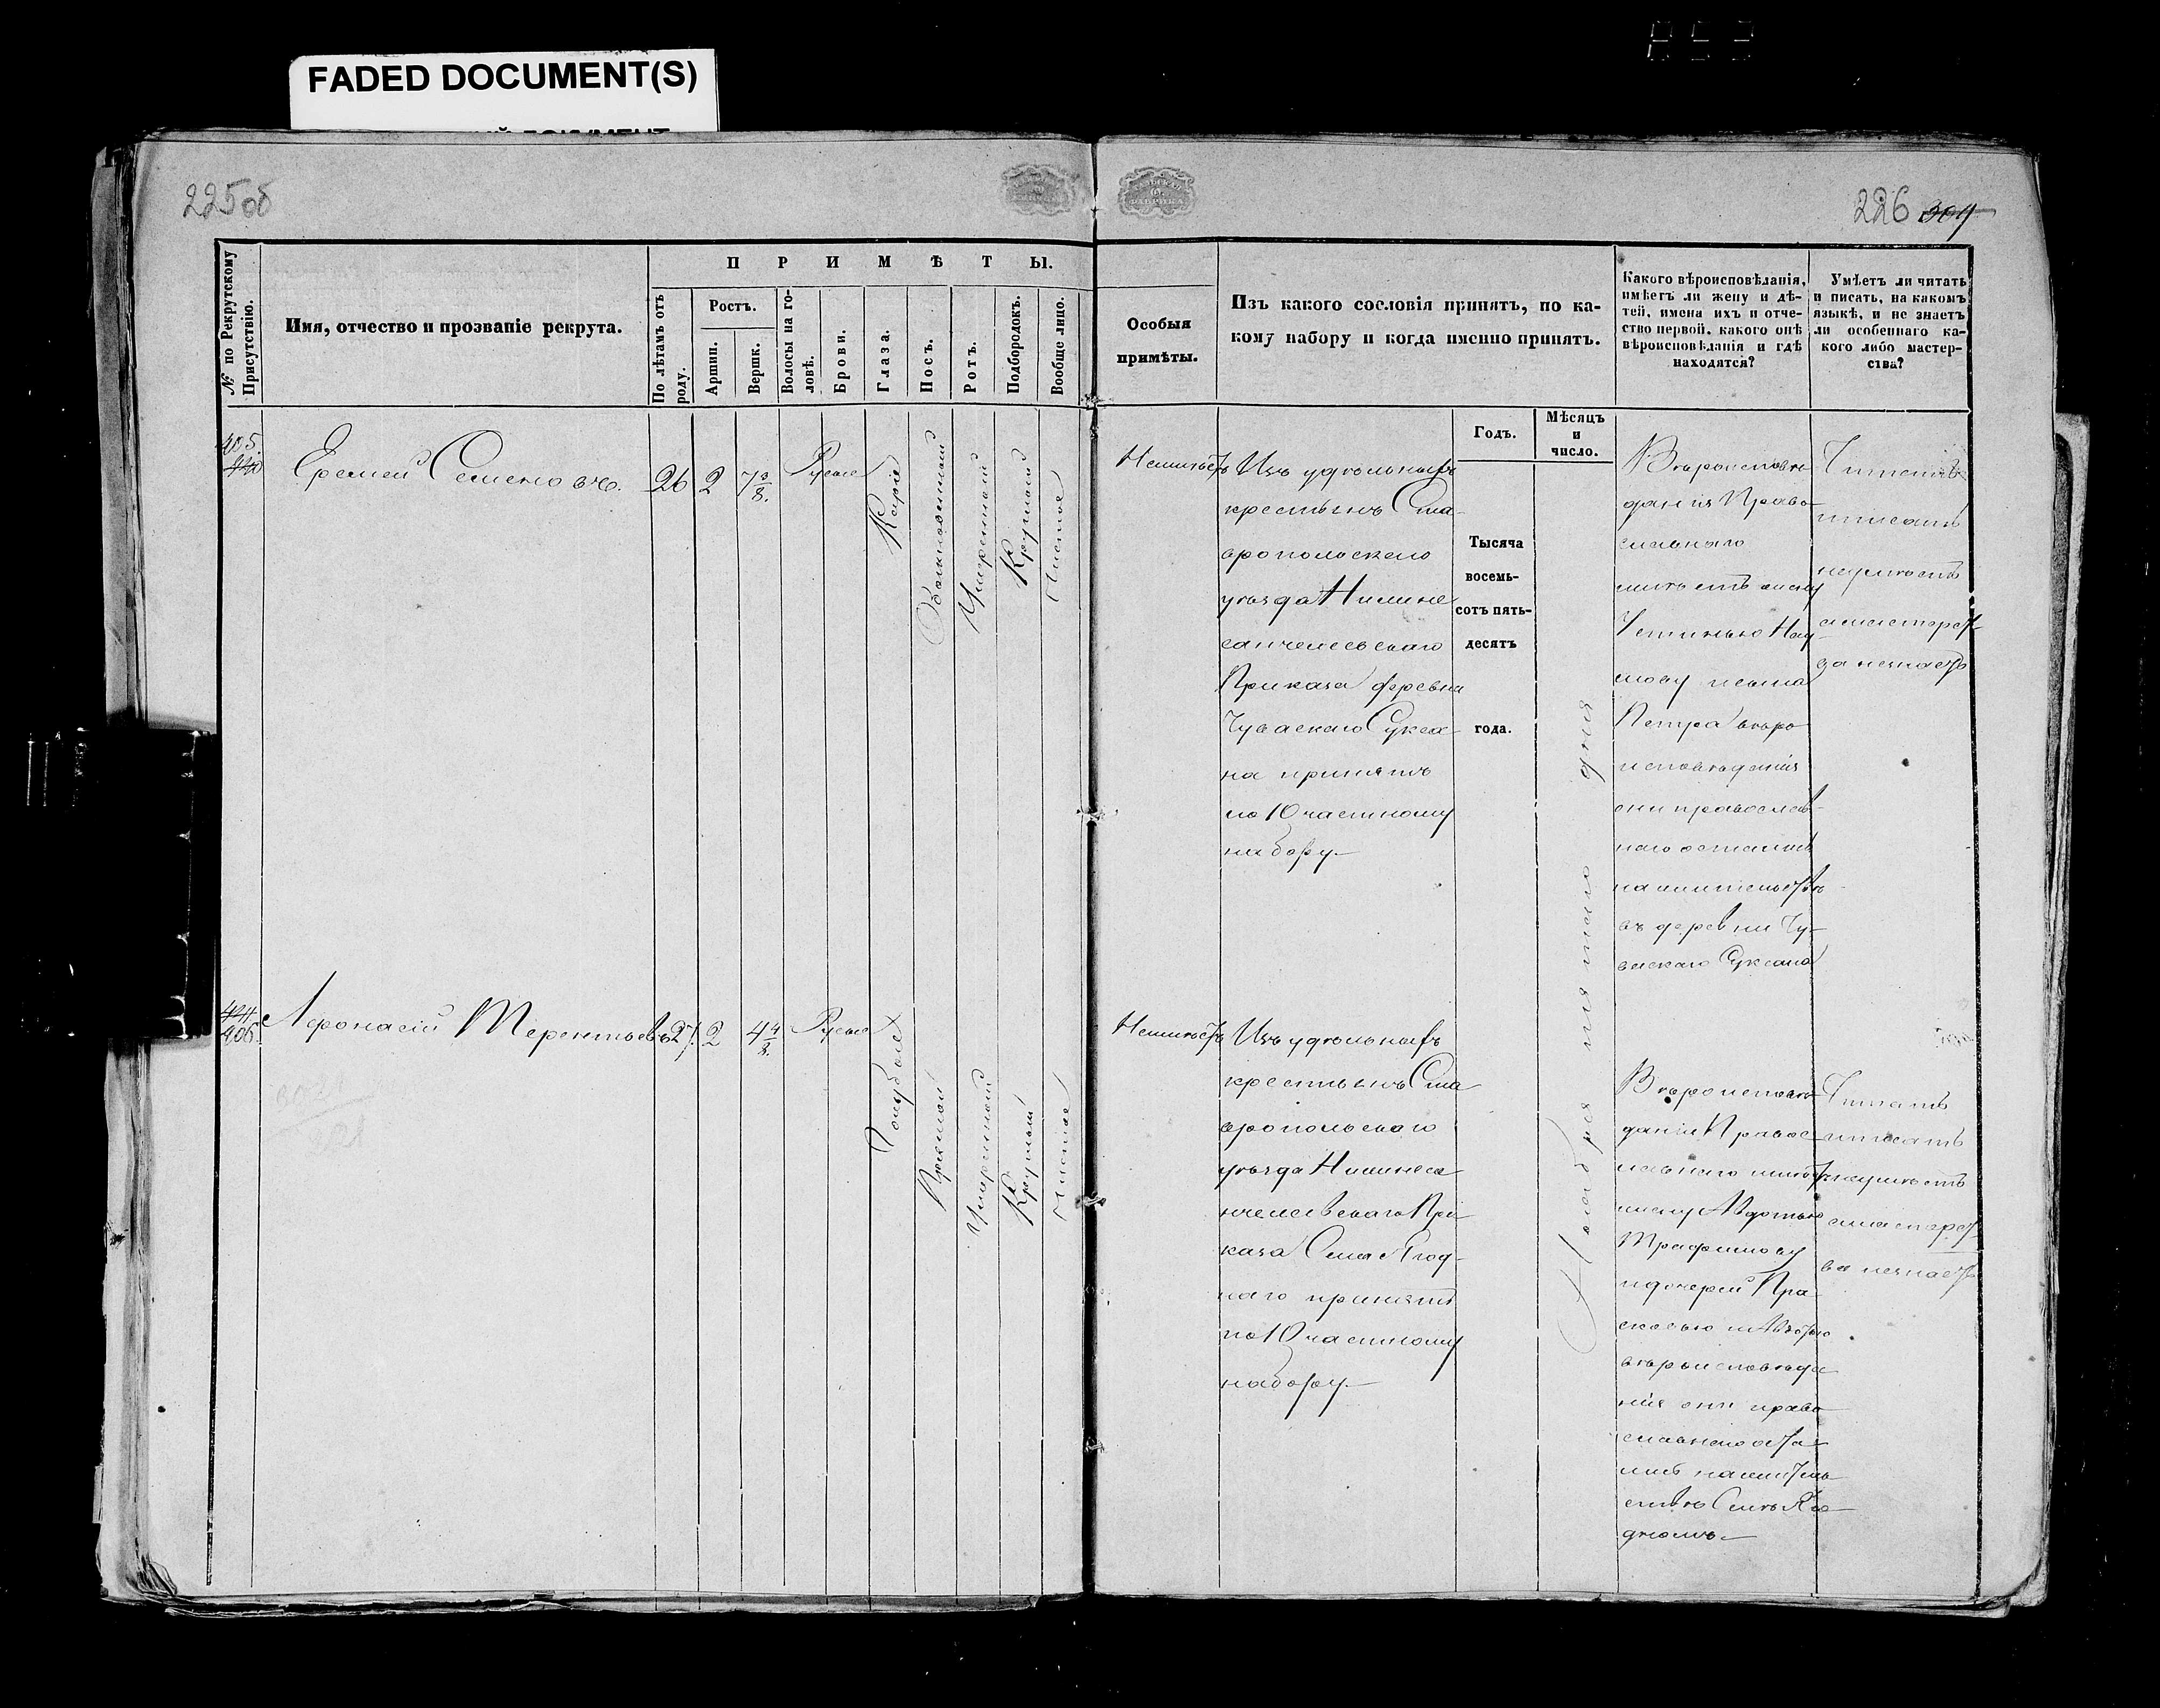 FADED DOCUMENT(S)
225об
226 304
№ по Рекрутскому Присутствію.
Имя, отчество и прозваніе рекрута.
П Р И М Ѣ Т Ы.
По лѣтамъ отъ роду.
Ростъ.
Аршин.
Вершк.
Волосы на головѣ.
Брови.
Глаза.
Носъ.
Ротъ.
Подбородокъ.
Вообще лицо.
Особыя
примѣты.
Изъ какого сословія принятъ, по ка-
кому набору и когда именно принятъ.
Какого вѣроисповѣданія,
имѣетъ ли жену и дѣ-
тей, имена ихъ и отче-
ство первой, какого онѣ
вѣроисповѣданія и гдѣ
находятся?
Умѣетъ ли читать
и писать, на какомъ
языкѣ, и не знаетъ
ли особеннаго ка-
кого либо мастер-
ства?
Годъ.
Мѣсяцъ
и
число.
405.
440
Еремей Семеновъ.
26 2 7 3/8.
Русые
Каріе
Обыкновенный
Умеренный
Круглый
Чистое
Неимѣетъ
Изъ удѣльныхъ
крестьянъ Ста-
вропольскаго
уѣзда Нижне
санчелеевскаго
Приказа деревни
Чуваскаго Сускана
на принятъ
по 10 частному
набору.
Тысяча
восемь-
сотъ пять-
десятъ
года.
Ноября пятаго дня
Вѣроисповѣ
данія Право-
славнаго
имѣетъ жену
Устинью Нау-
мову и сына
Петра вѣро
исповѣданія
они православ-
наго остались
на жительствѣ
въ деревни Чу-
васкаго Сускана
Читать и
писать
неумѣетъ
и мастерст-
ва незнаетъ
406.
Афонасій Терентьевъ
27. 2 4 4/8.
Русые
Голубые
Прямой
Умеренный
Круглый
Чистое
Неимѣетъ
Изъ удѣльныхъ
крестьянъ Ста
вропольскаго
уѣзда Нижнеса
нчелеевскаго При
каза Села Ягод-
наго принятъ
по 10 частному
набору.
Вѣроисповѣ-
данія Правос-
лавнаго имѣетъ
жену Авдотью
Трафимову
и дочерей Пра-
сковью и
вѣроисповѣда
нія они право
славнаго оста-
лись на житель
ствѣ Селѣ Яго
дномъ.
Читать
и писать
неумѣетъ
и мастерст-
ва незнаетъ